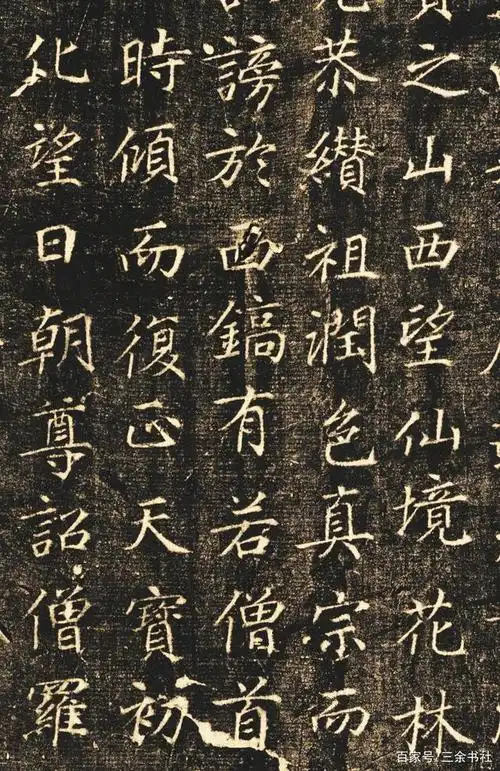 之山西望仙境花林
恭纘祖潤色真宗而
謗於西鎬有若僧首
時傾而復正天寶初
化望日朝尊詔僧羅
百家号/三余书社